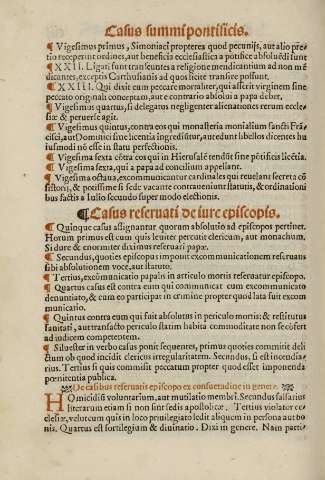 Casus summi pontificis.
¶ Vigesimus primus, Simoniaci propterea quod pecunijs, aut alio pretio
receperunt ordines, aut beneficia ecclesiastica a pontifice absolui
¶ XXII. Ligati sunt transeuntes a religione mendicantium ad non mē
dicantes, exceptis Carthusianis ad quos licite transire possunt.
¶ XXIII. Qui dixit eum peccare mortaliter, qui asserit virginem sine
peccato originali conceptam, aut e contrario absolui a papa debet.
¶ Vigesimus quartus, si delegatus negligenter alienationes rerum eccle
siæ & peruerse agit.
¶ Vigesimus quintus, contra eos qui monasteria monialium sancti Frā
cisci, aut Dominici sine licentia ingreditur, aut edunt libellos dicentes hu
iusmodi nō esse in statu perfectionis.
¶ Vigesima sexta cōtra eos qui in Hierusalē tendūt sine pōtificis licētia.
¶ Vigesima sexta, qui a papa ad concilium appellant.
¶ Vigesima octaua, excommunicantur cardinales qui reuelant secreta cō
sistorij, & potissime si sede vacante contrauenīunt statutis, & ordinationi
bus factis a Iulio secundo super modo electionis.
¶ Casus reseruati de iure episcopis.
¶ Quinque casus assignantur quorum absolutio ad episcopos pertinet.
Horum primus est cum quis leuiter percutit clericum, aut monachum.
Si dure & enormiter diximus reseruari papæ.
¶ Secundus, quoties episcopus imponit excommunicationem reseruans
sibi absolutionem voce, aut statuto.
¶ Tertius, excōmunicatio papalis in articulo mortis reseruatur episcopo.
¶ Quartus casus est contra eum qui communicat cum excommunicato
denuntiato, & cum eo participat in crimine propter quod lata fuit excom
municatio.
¶ Quintus contra eum qui fuit absolutus in periculo mortis: & restitutus
sanitati, aut transacto periculo statim habita commoditate non se cōfert
ad iudicem competentem.
¶ Siluester in verbo casus ponit sequentes, primus quoties committit deli
ctum ob quod incidit clericus irregularitatem. Secundus, si est incendia-
rius. Tertius si quis commisit peccatum propter quod esset imponenda
pœnitentia publica.
De casibus reseruatis episcopo ex consuetudine in genere
Homicidiū voluntarium, aut mutilatio membri. Secundus falsarius
literarum etiam si non sint sedis apostolicæ. Tertius violator ec
clesiæ, velut cum quis in loco priuilegiato ledit aliquem in persona aut bo
nis. Quartus est sortilegium & diuinatio. Dixi in genere. Nam parti-